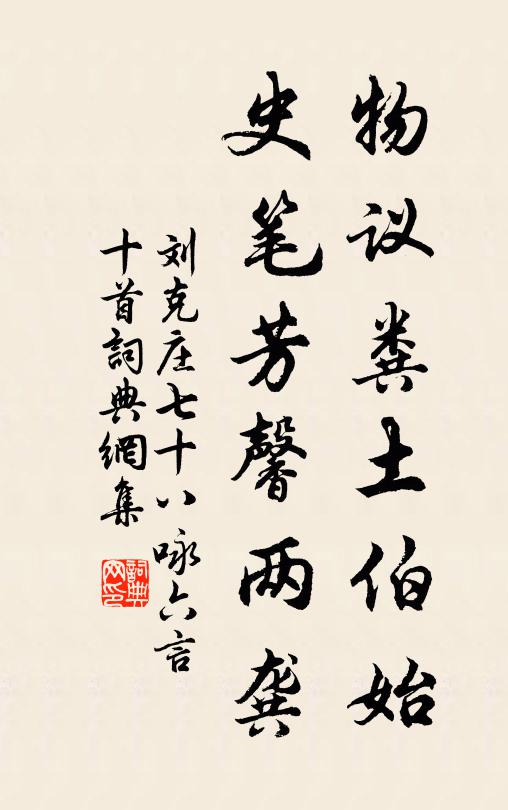 物议粪土伯始
史笔芳馨两龚
刘克庄七十八咏六言
十首詞典網集
詞典
网印